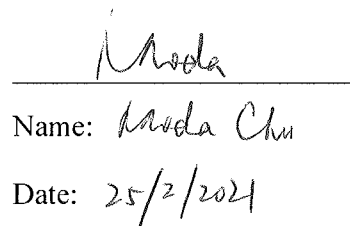 Moda
Name: Moda Chu
Date: 25/2/2021